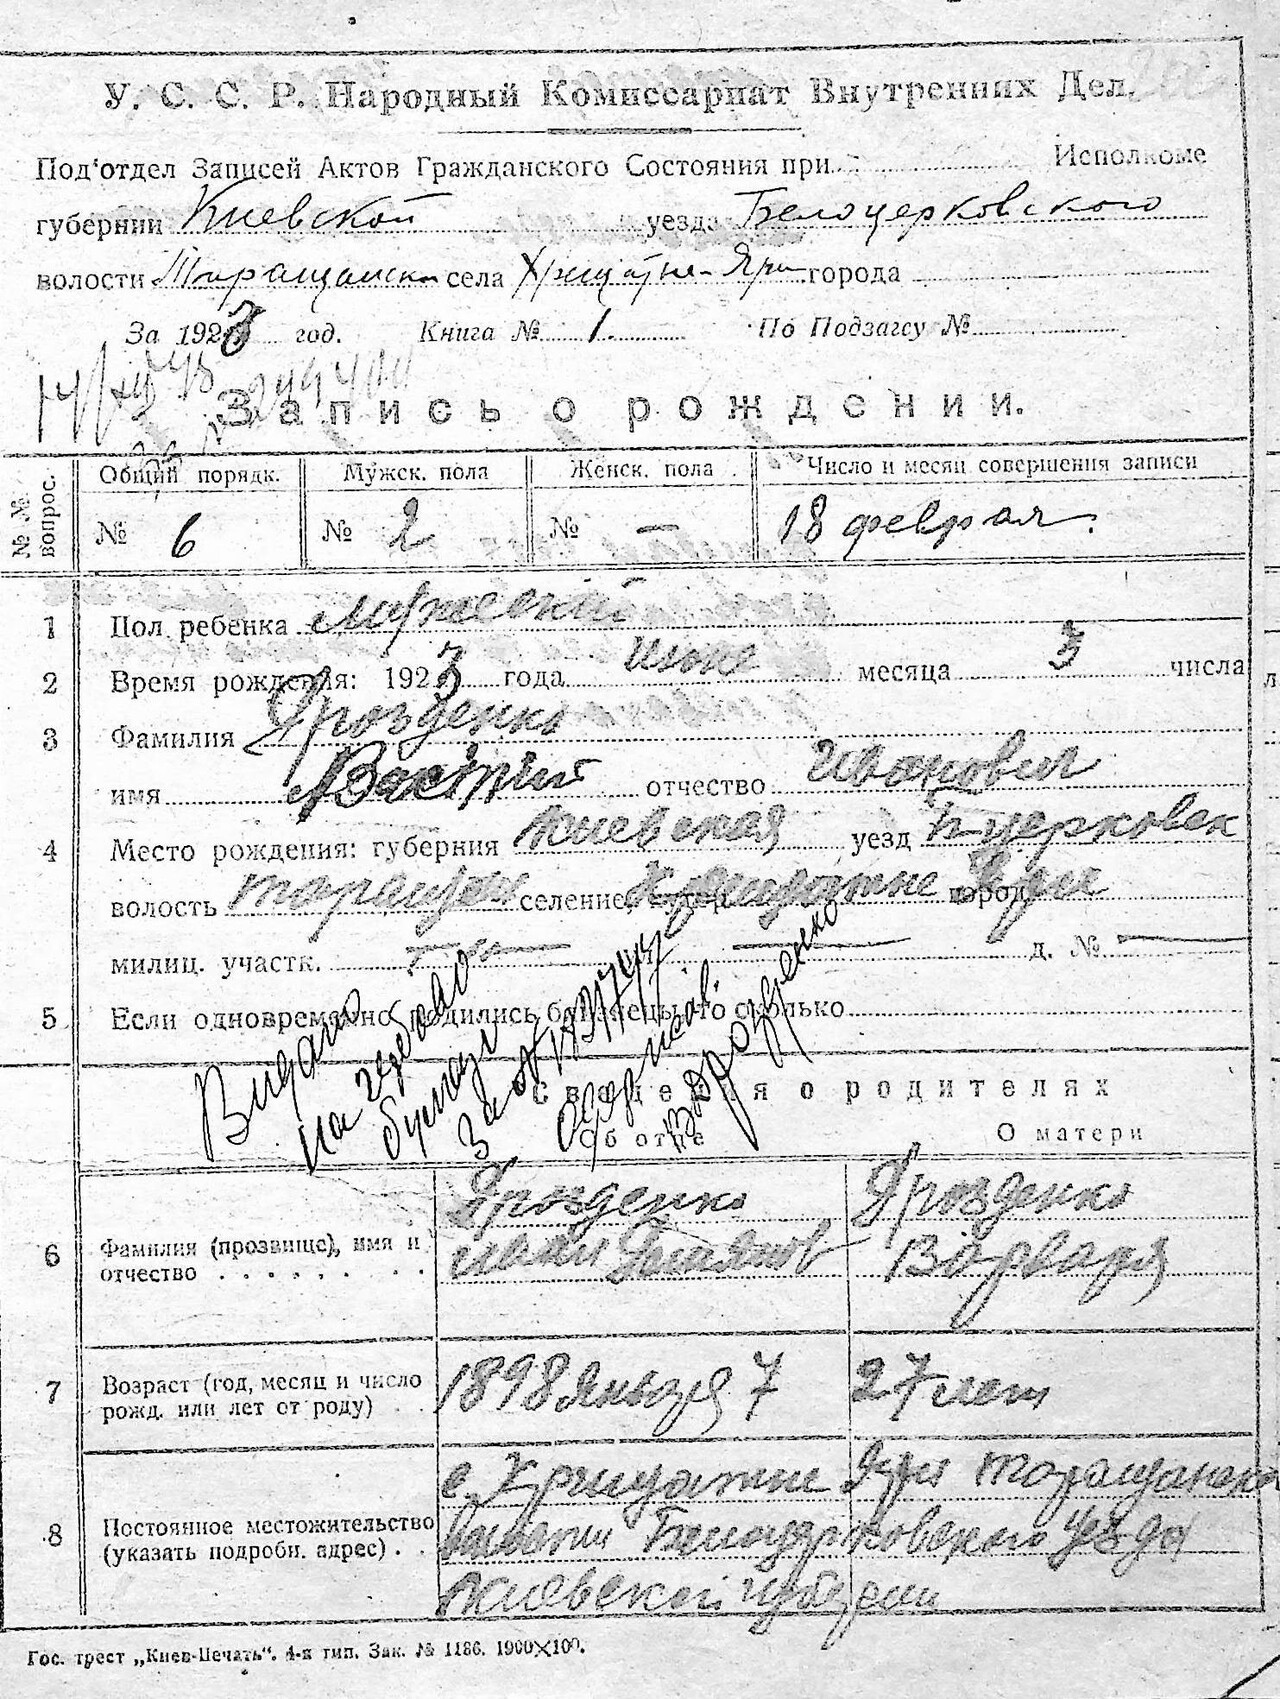 У. С. С. Р. Народный Комиссариат Внутренних Дел.
Под'отдел Записей Актов Гражданского Состояния при Исполкоме
губернии Киевской уезда Белоцерковского
волости села города
За 1923 год. Книга № 1. По Подзагсу №
Запись о рождении.
№ № вопрос. Общий порядк. Мужск. пола Женск. пола Число и месяц совершения записи
№ 6 № 2 № — 18 февраля.
1 Пол ребенка мужеский
2 Время рождения: 1923 года месяца 3 числа
3 Фамилия Дрозденко
имя отчество Иванович
4 Место рождения: губерния Киевская уезд Бцерковск
волость Таращан селение, хутор Хрищатне Яри город
милиц. участк. — — д. № —
5 Если одновременно родились близнецы, то сколько
Сведения о родителях
Об отце О матери
Видано
на гербово
бумазі
за №
Дрозденко
Дрозденко Дрозденко
6 Фамилия (прозвище), имя и отчество Иван Варвара
7 Возраст (год, месяц и число рожд. или лет от роду) 1898 января 7 27 лет
с. Хрищатне Яри Таращанско
8 Постоянное местожительство (указать подробн. адрес) волости Белоцерковского уезда
Киевской губернии
Гос. трест „Киев-Печать“. 4-я тип. Зак. № 1186. 1900×100.